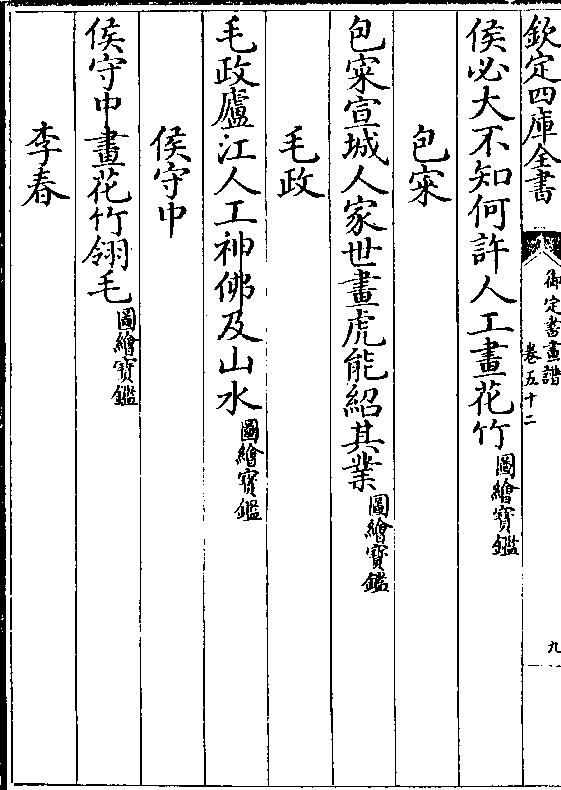 欽定四庫全書
御定書畫譜
卷五十二
九
侯必大不知何許人工畫花竹圖繪寶鑑
包寀
包寀宣城人家世畫虎能紹其業圖繪寶鑑
毛政
毛政廬江人工神佛及山水圖繪寶鑑
侯守中
侯守中畫花竹翎毛圖繪寶鑑
李春